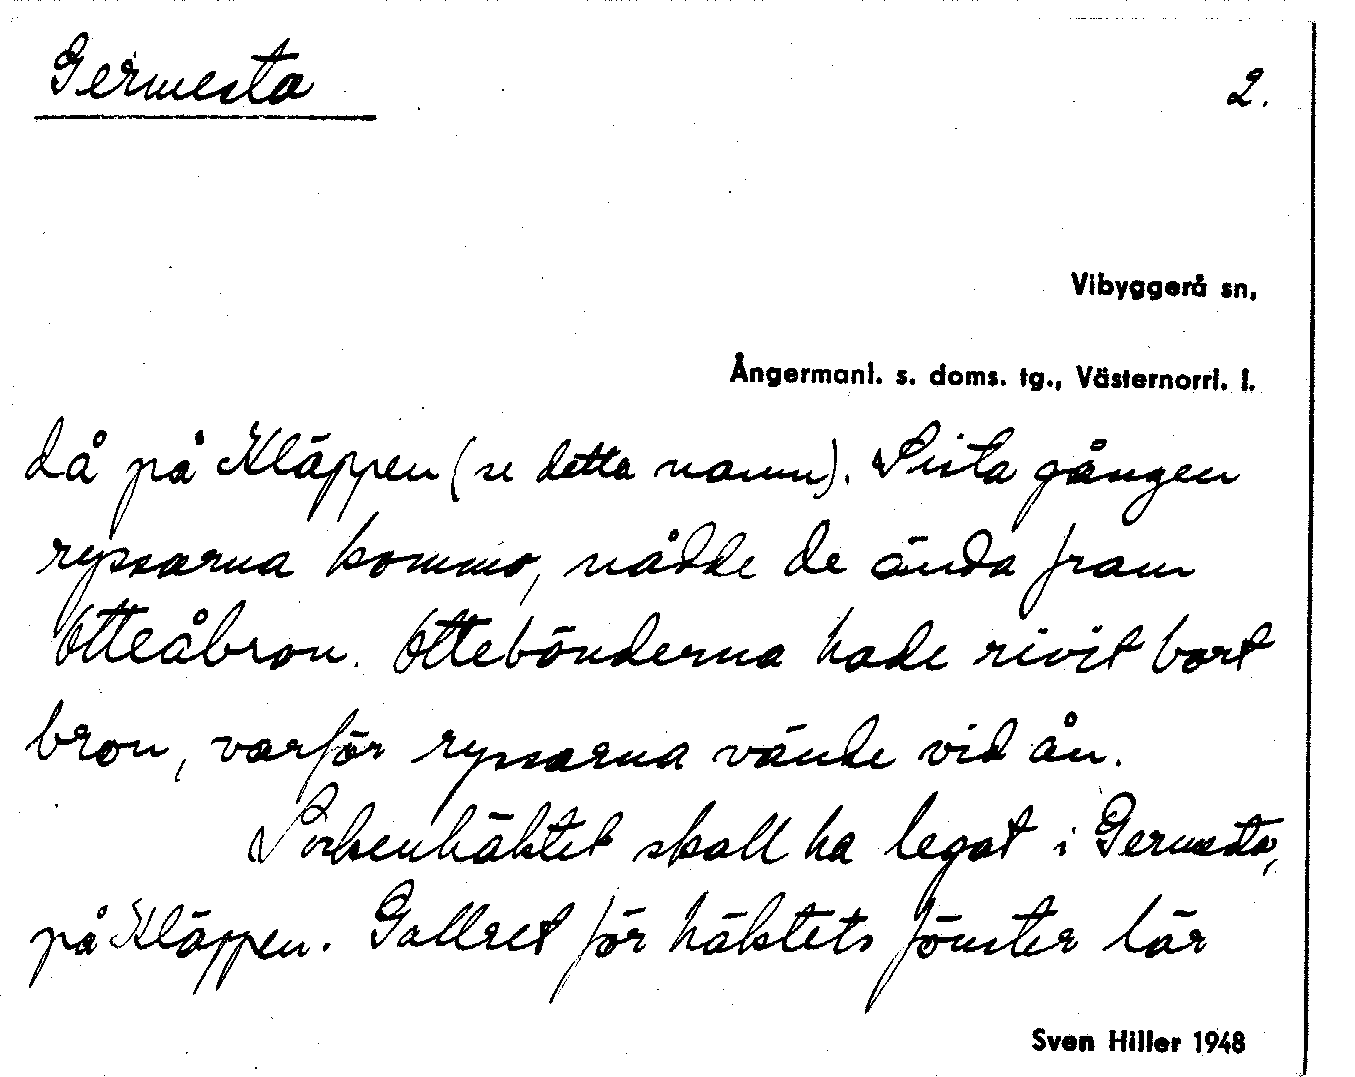 Germesta
2.
Vibyggerå sn,
Ångermanl. s. doms. tg., Västernorrl. l.
då på Kläppen (se detta namn). Sista gången
ryssarna kommo, nådde de ända fram
Otteåbron. Ottebönderna hade rivit bort
bron, varför ryssarna vände vid ån.
Sockenhäktet skall ha legat i Germesta,
på Kläppen. Gallret för häktets fönster lär
Sven Hiller 1948